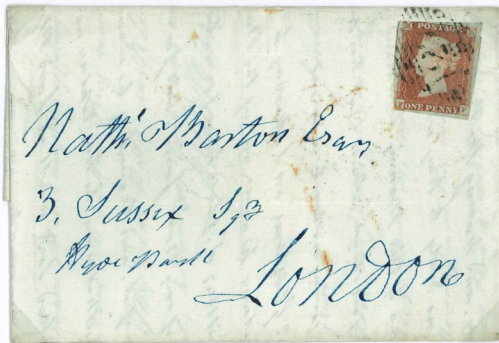 POSTAGE
ONE PENNY
Nathl Barton Esqr
3. Sussex Sqr
Hyde Park
London